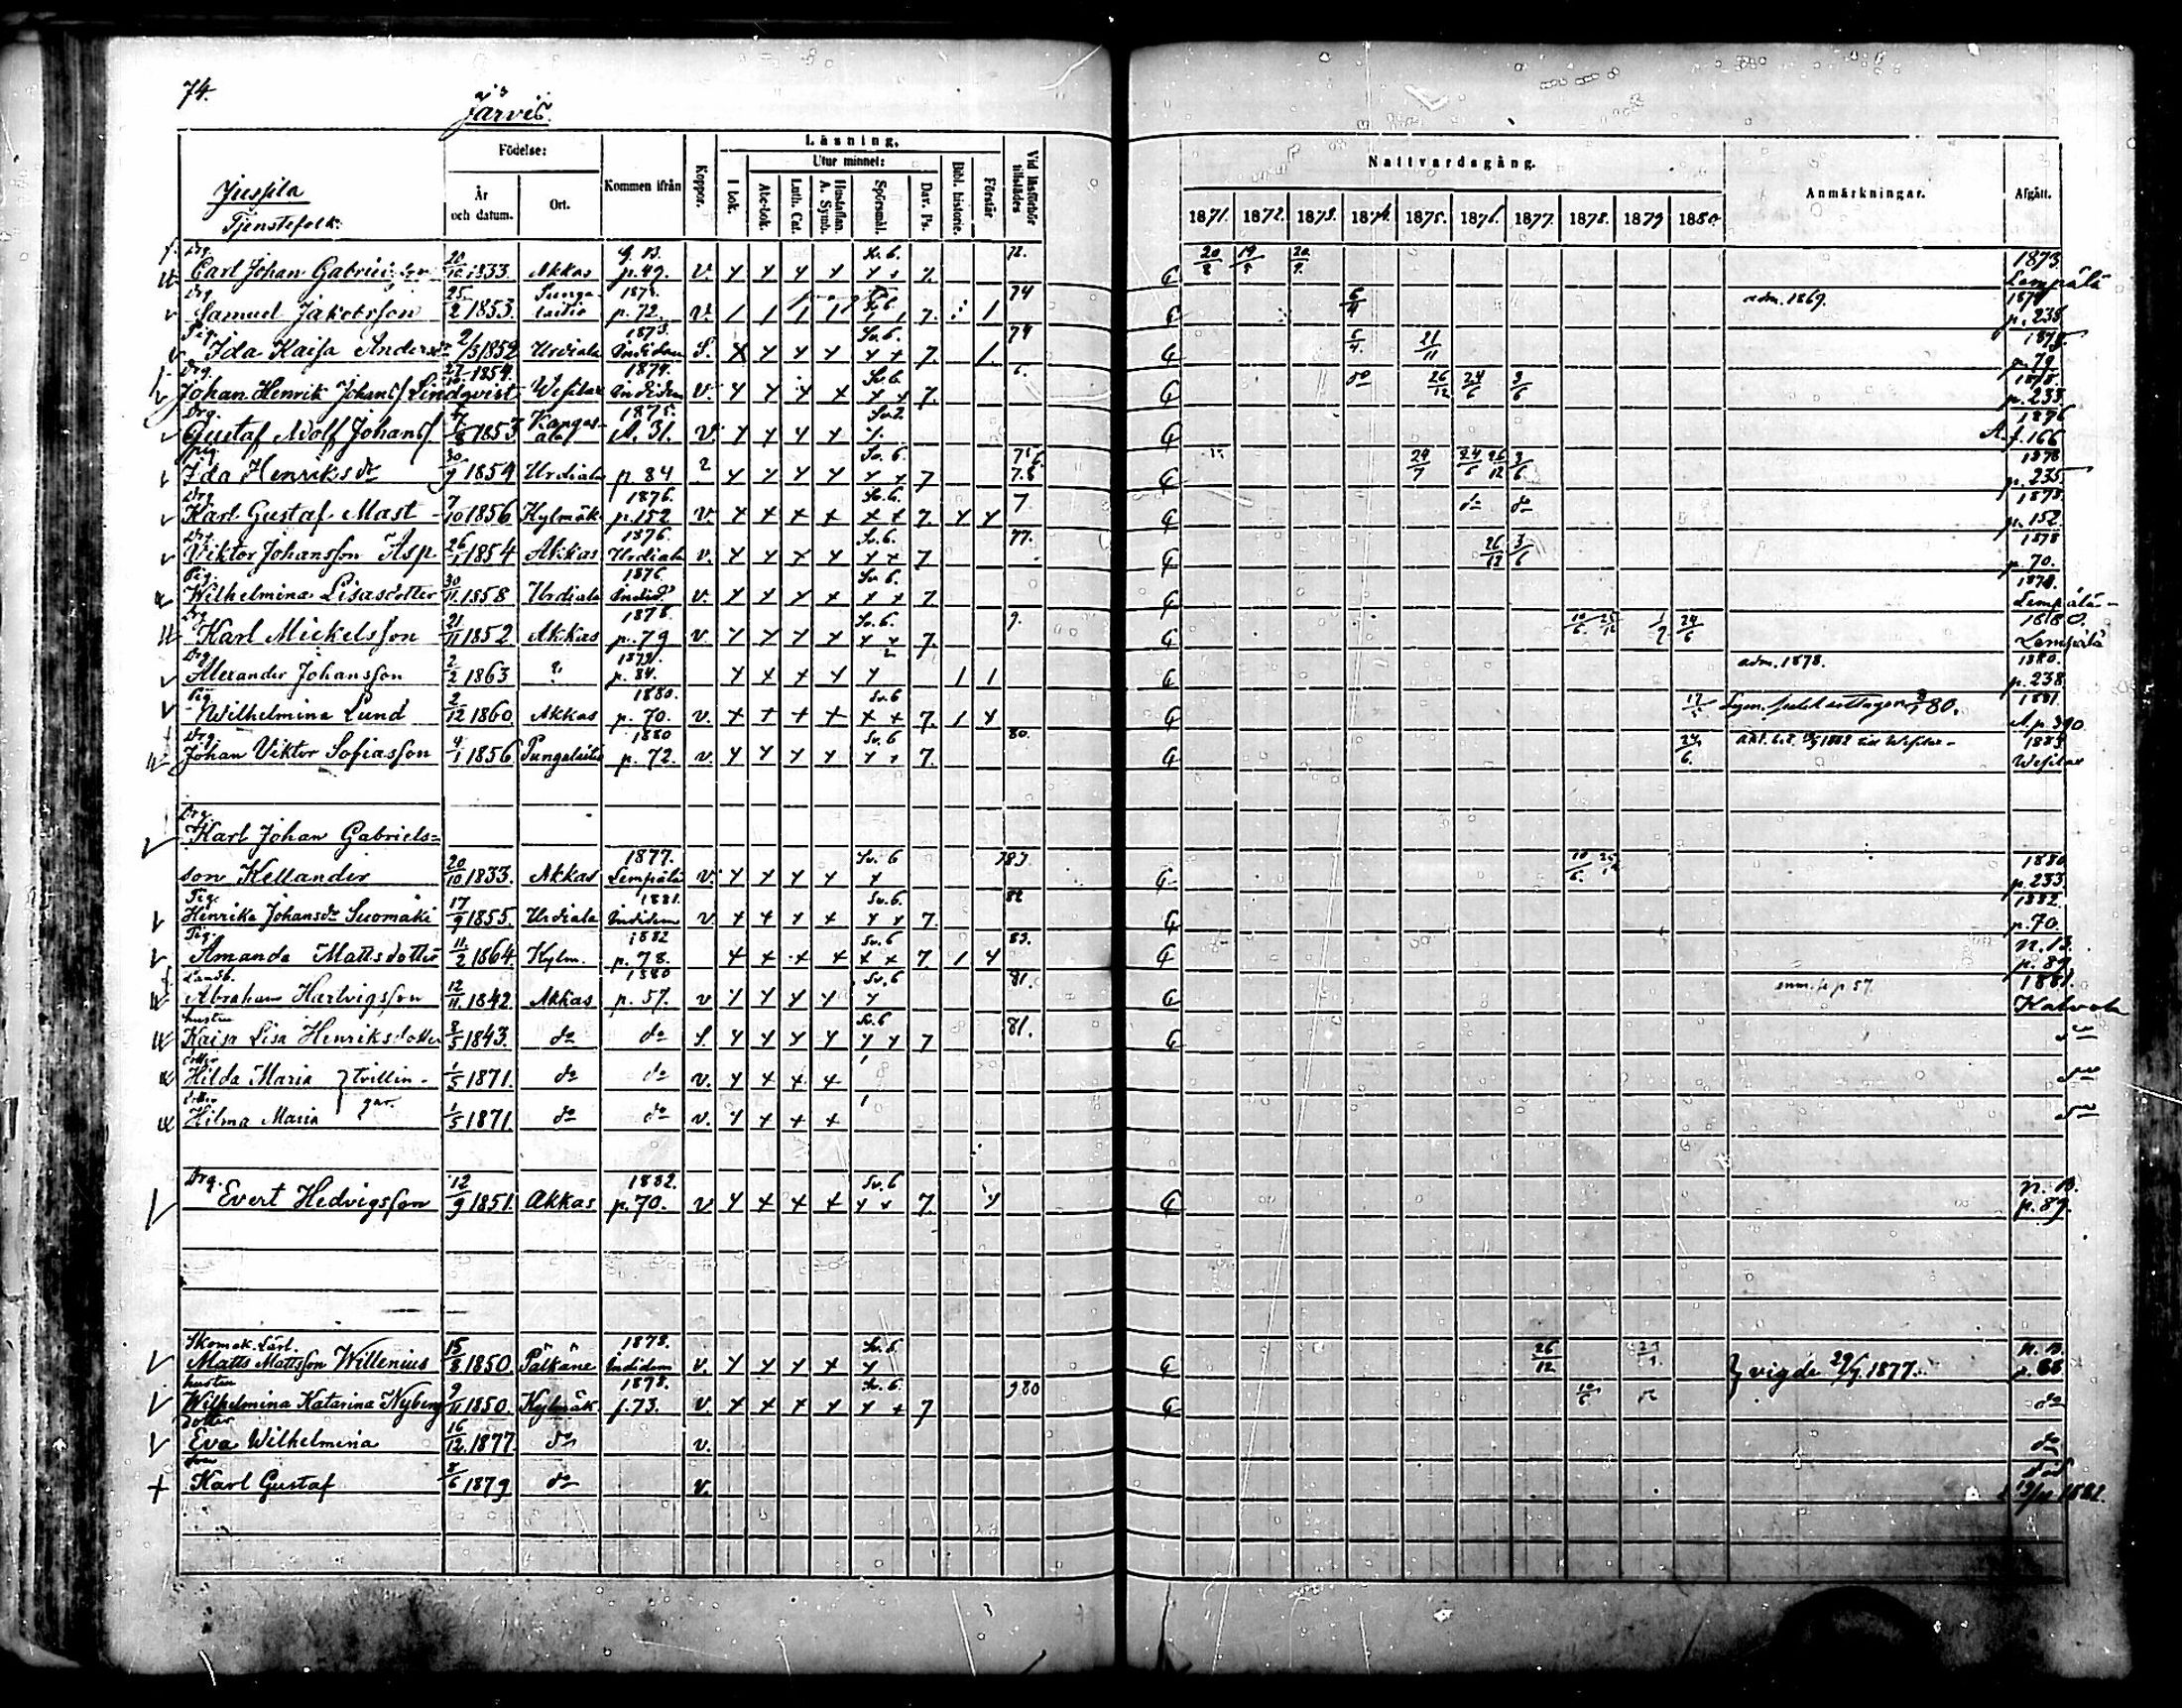 74.
Järvis.
Jussila
Tjenstefolk.
Födelse:
År och datum.
Ort.
Kommen ifrån
Koppor.
Läsning.
I bok.
Utur minnet:
Abc-bok.
Luth. Cat.
Hustaflan. A. Symb.
Spörsmål.
Dav. Ps.
Bibl. historie.
Förstår.
Vid läsförhör tillstädes
Nattvardsgång.
1871. 1872. 1873. 1874. 1875. 1876. 1877. 1878. 1879 1880.
Anmärkningar.
Afgått.
Drg. Carl Johan Gabrielsson 20/10 1833. Akkas p. 49. v. Sv. 6. 7. 72. 20/8 1873. Lempälä
Drg Samuel Jakobsson 25/2 1853. p. 72. v. 7. 74 adm. 1869. p. 238
Pig. Ida Kaisa Anders 2/3 1852 Urdiala 1873. Indidem S. Sv. 6. 7. 74 21/11 p. 79.
Drg. Johan Henrik Johanss Lindqvist 1854. Wesilax 1874. Indidem v. Sv. 6. 7. 6. do 26/12 24/6 3/6 p. 233
Drg. Gustaf Adolf Johanss 1853 Kangasala 1875. A. 31. v. Sv. 2 1876 A. f. 166
Pig Ida Henriksdr 1859 Urdiala p. 84 2 Sv. 6 7 7.8 24/7 24/6 26/12 3/6 1878 p. 235
Drg Karl Gustaf Mast 7/10 1856 Kylmäk 1876. p. 152 v. Sv. 6. 7. 7 do do 1878. p. 152
Drg. Viktor Johansson Asp 26/1 1854 Akkas 1876. Urdiala v. Sv. 6. 7 77. 26/12 3/6 1878 p. 70.
Pig. Wilhelmina Lisasdotter 30/11 1858 Urdiala 1876. Indid. v. Sv. 6. 7. 1878. Lempälä
Drg Karl Mickelsson 21/11 1852 Akkas 1878. p. 79 v. Sv. 6. 7. 9. 24/6 1880. Lempälä
Drg Alexander Johansson 2/2 1863 ? 1879. p. 84. 1 1 adm. 1878. 1880. p. 238
Pig Wilhelmina Lund 2/12 1860 Akkas 1880. p. 70. v. Sv. 6 7. 1 80. 1881. A p. 390
Drg. Johan Viktor Sofiasson 4/1 1856 Pungalaitio 1880 p. 72. v. Sv. 6 7. 80. 24/6. 1883 Wesilax
Drg. Karl Johan Gabriels=
son Kellander 20/10 1833. Akkas 1877. Lempälä v. Sv. 6 10/6. 1880 p. 233
Pig. Henrika Johansdr Suomäki 17/9 1855. Urdiala 1881. Indidem v. Sv. 6. 7. 82 1882. p. 70.
Pig. Amanda Mattsdotter 11/2 1864. Kylm. 1882 p. 78. Sv. 6 7. 1 83. n. B. p. 87
Abraham Hartvigsson 12/11 1842. Akkas 1880 p. 57. v Sv. 6 81. p. 57. 1881. Kalvola
hustru Kaisa Lisa Henriksdotter 8/5 1843. do do S. Sv. 6 7 81. do
dotter Hilda Maria } tvillin- 1/5 1871. do do v. do
dotter Hilma Maria gar. 1/5 1871. do do v. do
Drg. Evert Hedvigsson 12/9 1851. Akkas 1882. p. 70. v Sv. 6 7. n. B. p. 87.
Skomak. Lärl. Matts Mattsson Willenius 15/8 1850. Pälkäne 1878. Indidem v. Sv. 6. 26/12 } vigde 29/9 1877. n. B. p. 88
hustru Wilhelmina Katarina Nyberg 9/11 1850. Kylmäk 1878. p. 73. v. Sv. 6. 7 980 10/6 do do
dotter Eva Wilhelmina 16/12. 1877. do v. do
son Karl Gustaf 8/6 1879 do v. död 1881.